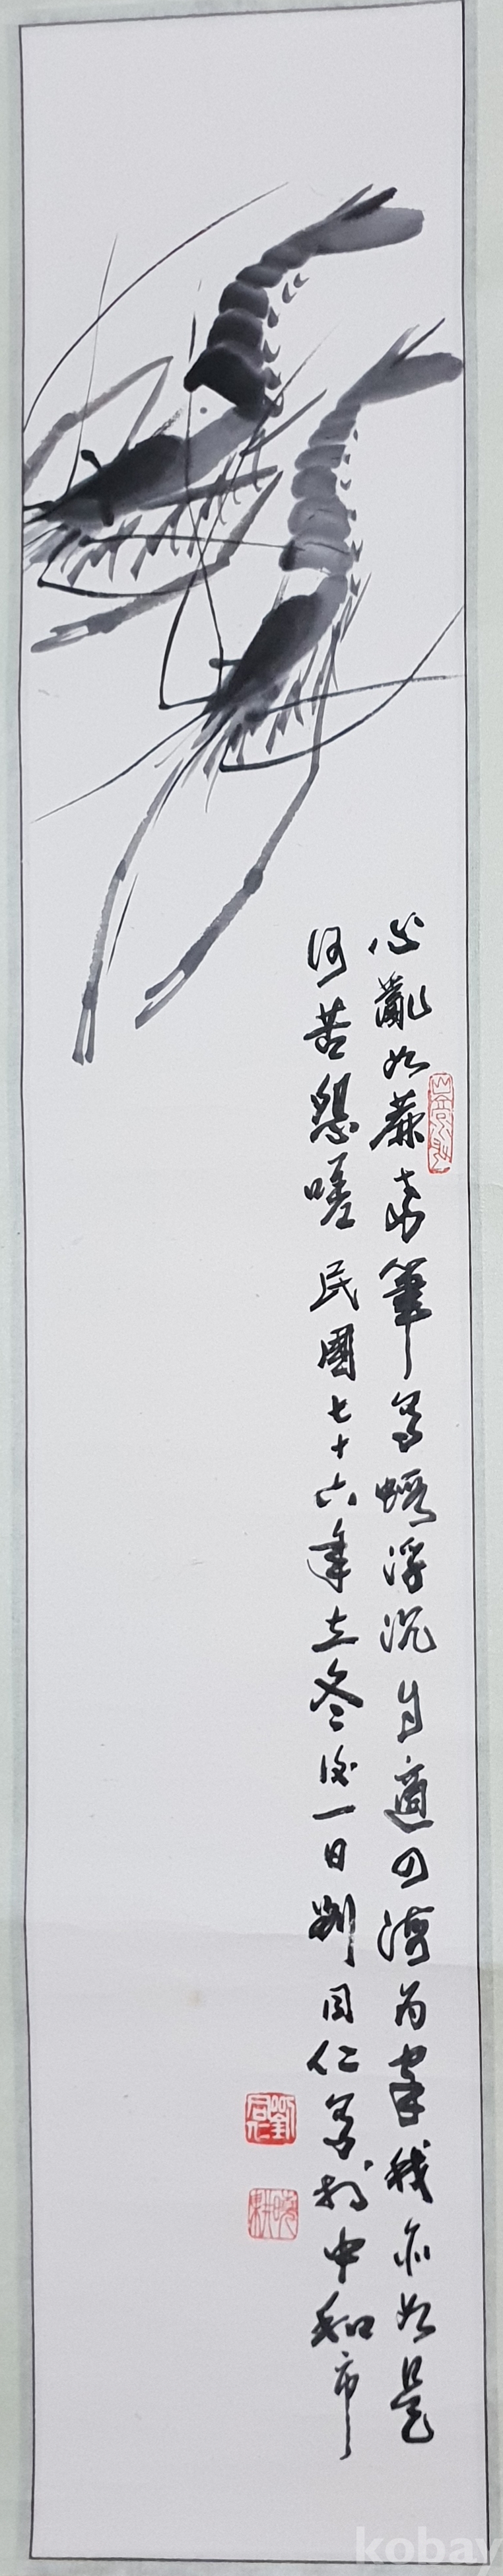 心亂如蔴索筆寫蝦浮沉自適四海為家我亦如是
何苦怨嗟 民國七十六年立冬後一日劉同仁寫於中和市
kobay